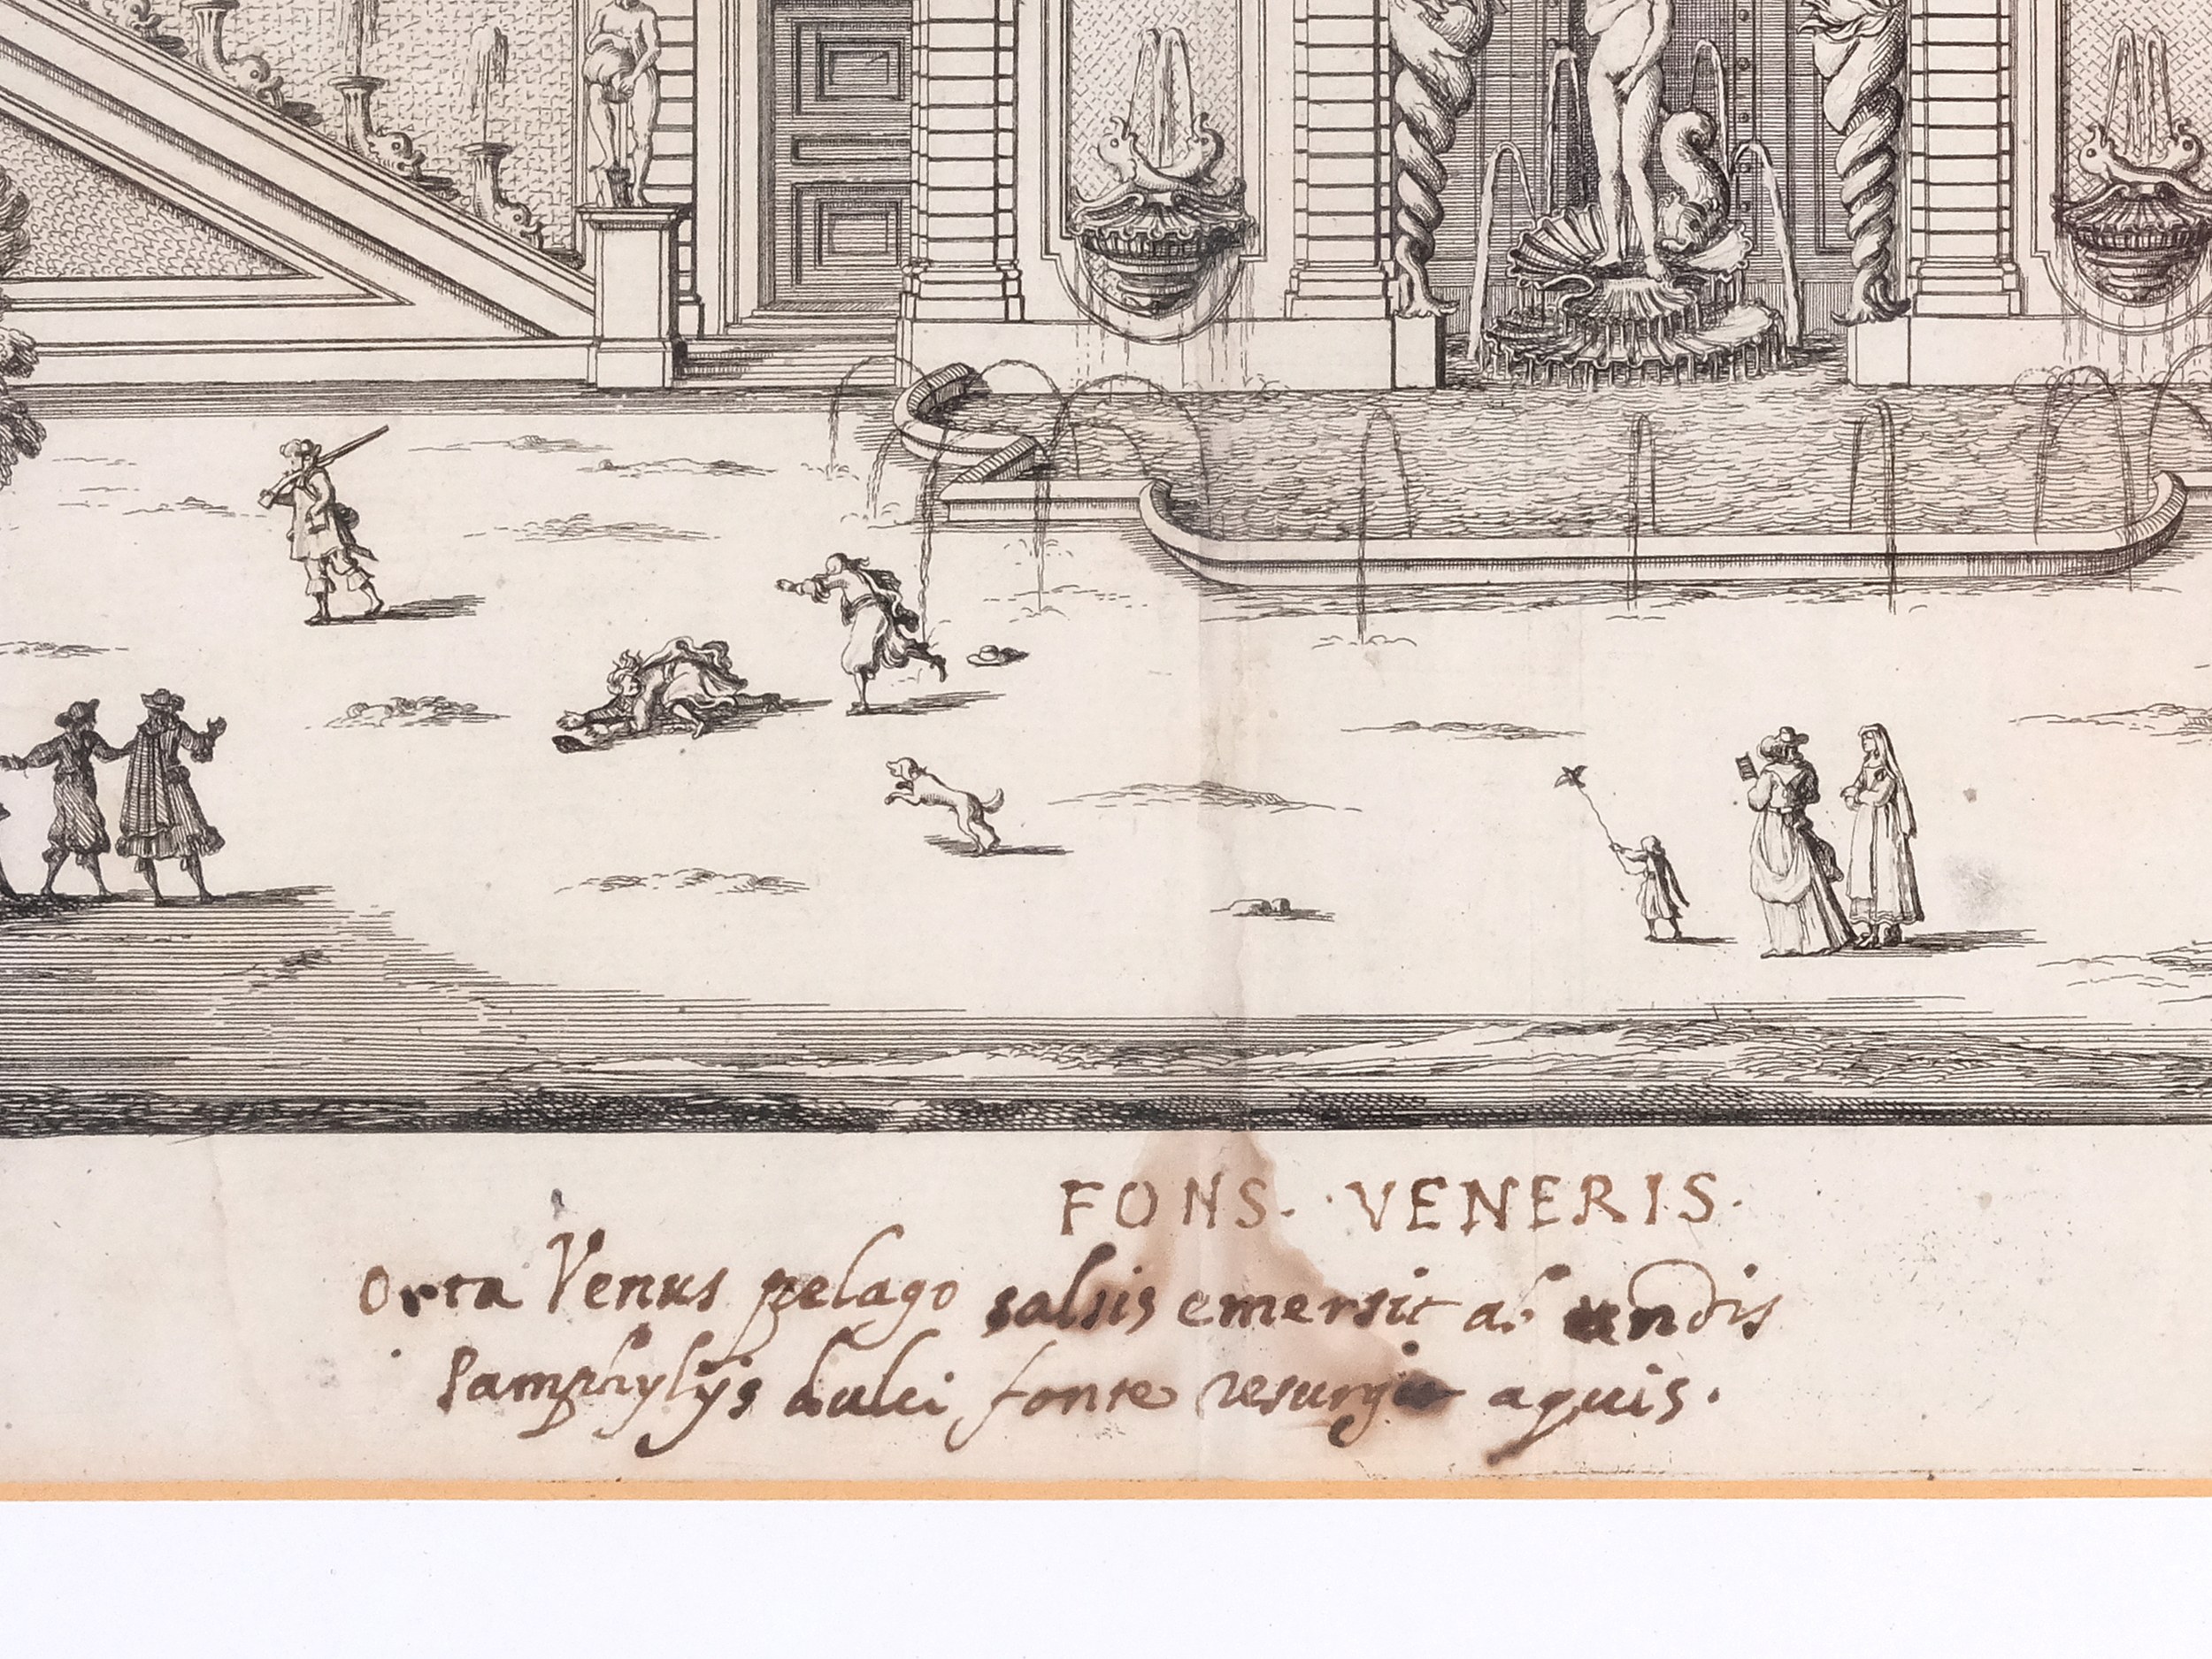 FONS. VENERIS.
Orta Venus pelago salsis emersit ab undis
Pamphylijs dulci fonte resurgit aquis.